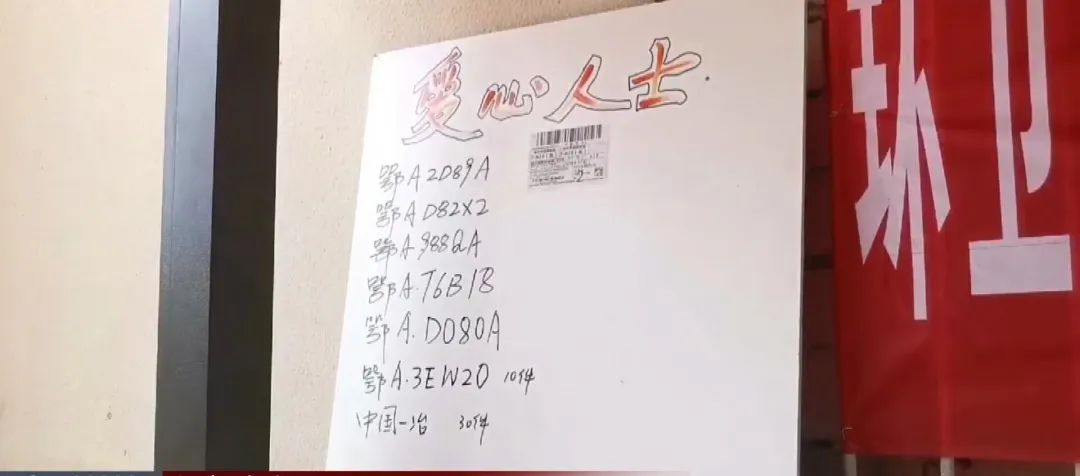 爱心人士
鄂A2D89A
鄂AD82X2
鄂A988QA
鄂A·T6B18
鄂A·D080A
鄂A·3EW20 10件
中国一冶 30件
环卫